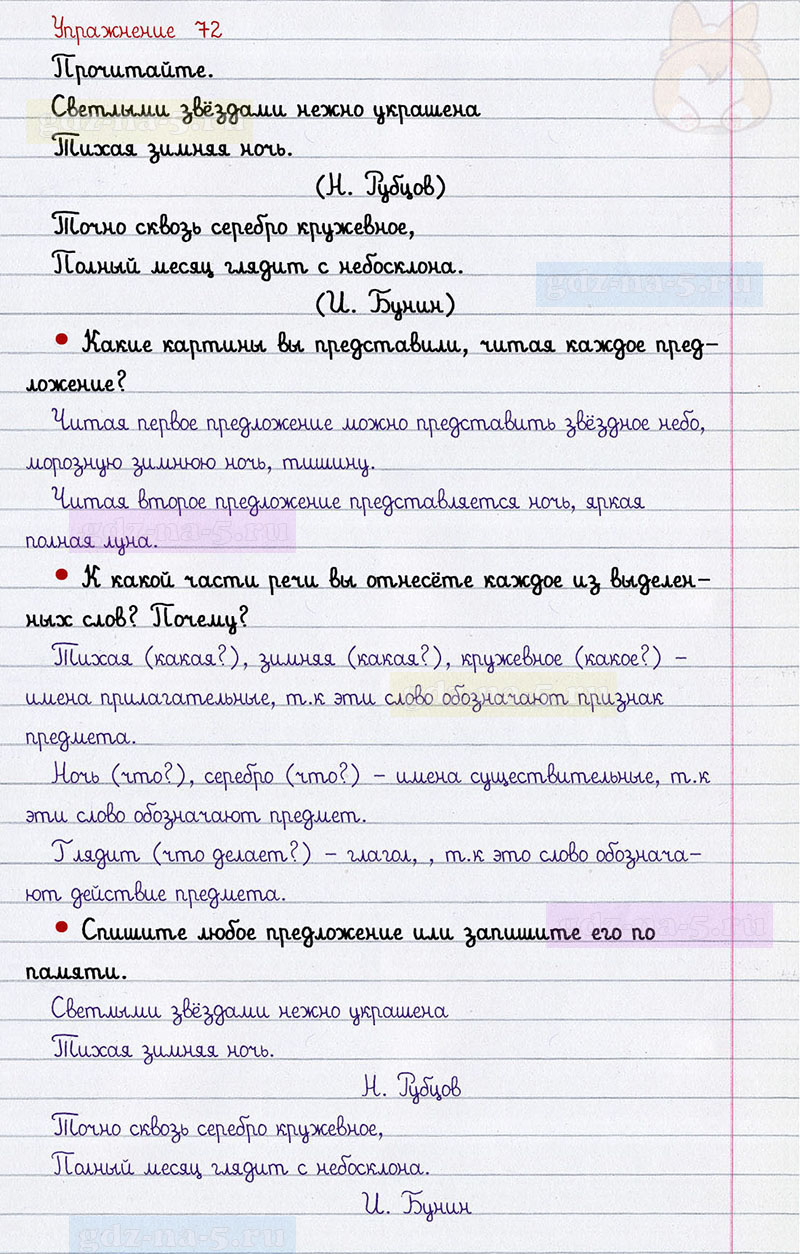 Упражнение 72
Прочитайте.
Светлыми звёздами нежно украшена
gdz-na-5.ru
Тихая зимняя ночь.
(Н. Рубцов)
Точно сквозь серебро кружевное,
Полный месяц глядит с небосклона.
gdz-na-5.ru
(И. Бунин)
• Какие картины вы представили, читая каждое пред-
ложение?
Читая первое предложение можно представить звёздное небо,
морозную зимнюю ночь, тишину.
Читая второе предложение представляется ночь, яркая
gdz-na-5.ru
полная луна.
• К какой части речи вы отнесёте каждое из выделен-
ных слов? Почему?
Тихая (какая?), зимняя (какая?), кружевное (какое?) –
имена прилагательные, т.к эти слово обозначают признак
gdz-na-5.ru
предмета.
Ночь (что?), серебро (что?) – имена существительные, т.к
эти слово обозначают предмет.
Глядит (что делает?) – глагол, , т.к это слово обознача-
ют действие предмета.
• Спишите любое предложение или запишите его по
gdz-na-5.ru
памяти.
Светлыми звёздами нежно украшена
Тихая зимняя ночь.
Н. Рубцов
Точно сквозь серебро кружевное,
Полный месяц глядит с небосклона.
И. Бунин
gdz-na-5.ru